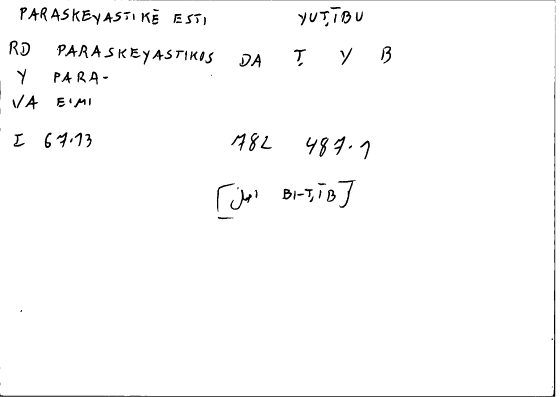 PARASKEYASTIKĒ ESTI YUṬĪBU
RD PARASKEYASTIKOS DA Ṭ Y B
Y PARA-
VA EIMI
I 67.13 782 487.1
BI-ṬĪB]